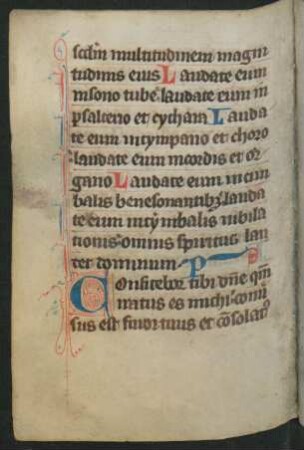 scd'm multitudinem magni
tudinis eius Laudate eum
in sono tube laudate eum in
psalterio et cythara Lauda
te eum in tympano et choro
laudate eum in cordis et or
gano Laudate eum in cim
balis benesonantib; lauda
te eum in cymbalis iubila
tionis omnis spiritus lau
det dominum
Confitebor tibi dn̄e qm̄
iratus es michi conu̾
sus est furor tuus et c̄solat'